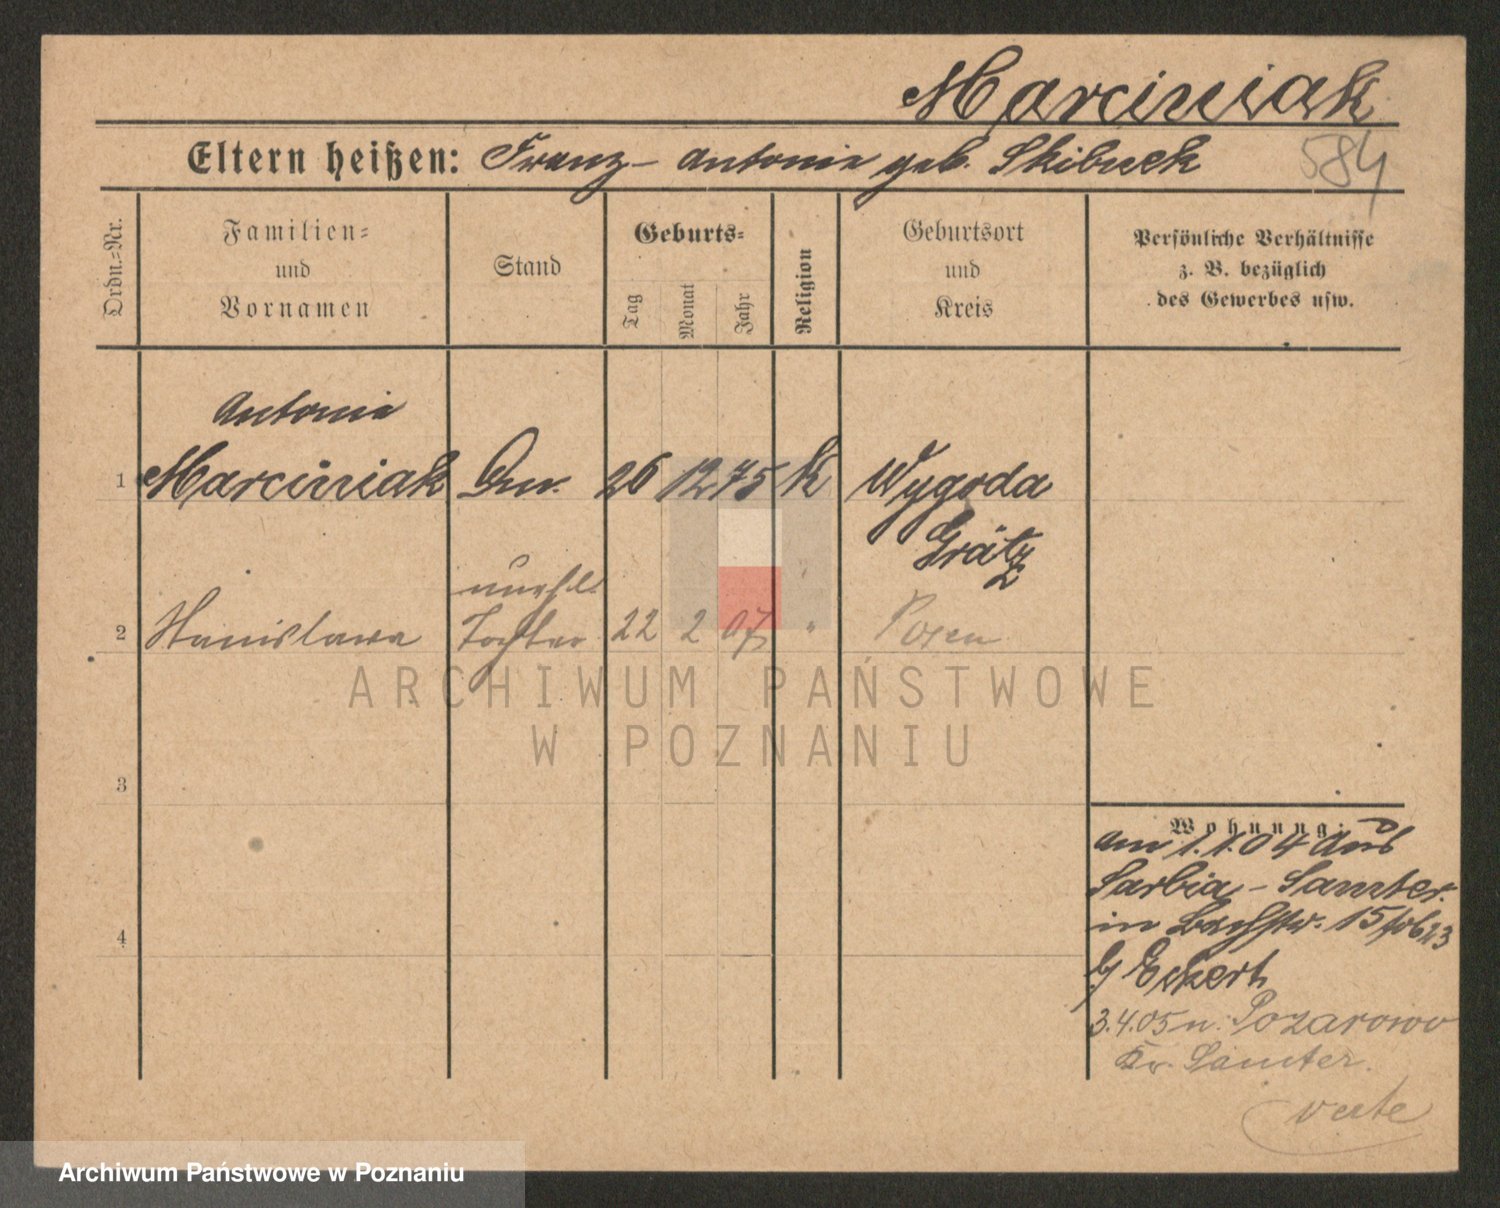 Marciniak
Eltern heißen: Franz – Antonie geb. Skibuck
584
Ordn.-Nr.
Familien-
und
Vornamen
Stand
Geburts-
Tag
Monat
Jahr
Religion
Geburtsort
und
Kreis
Persönliche Verhältnisse
z. B. bezüglich
des Gewerbes usw.
Antonie
1 Marciniak 26 12 75 K Wygoda
Grätz
unehl.
2 Stanislawa Tochter 22 2 07 " Posen
3
4
Wohnung:
am 1.1.04 aus
Sarbia – Samter.
in 15
b/ Eckert
3.4.05 n. Pozarowo
Kr. Samter.
verte
ARCHIWUM PAŃSTWOWE
W POZNANIU
Archiwum Państwowe w Poznaniu